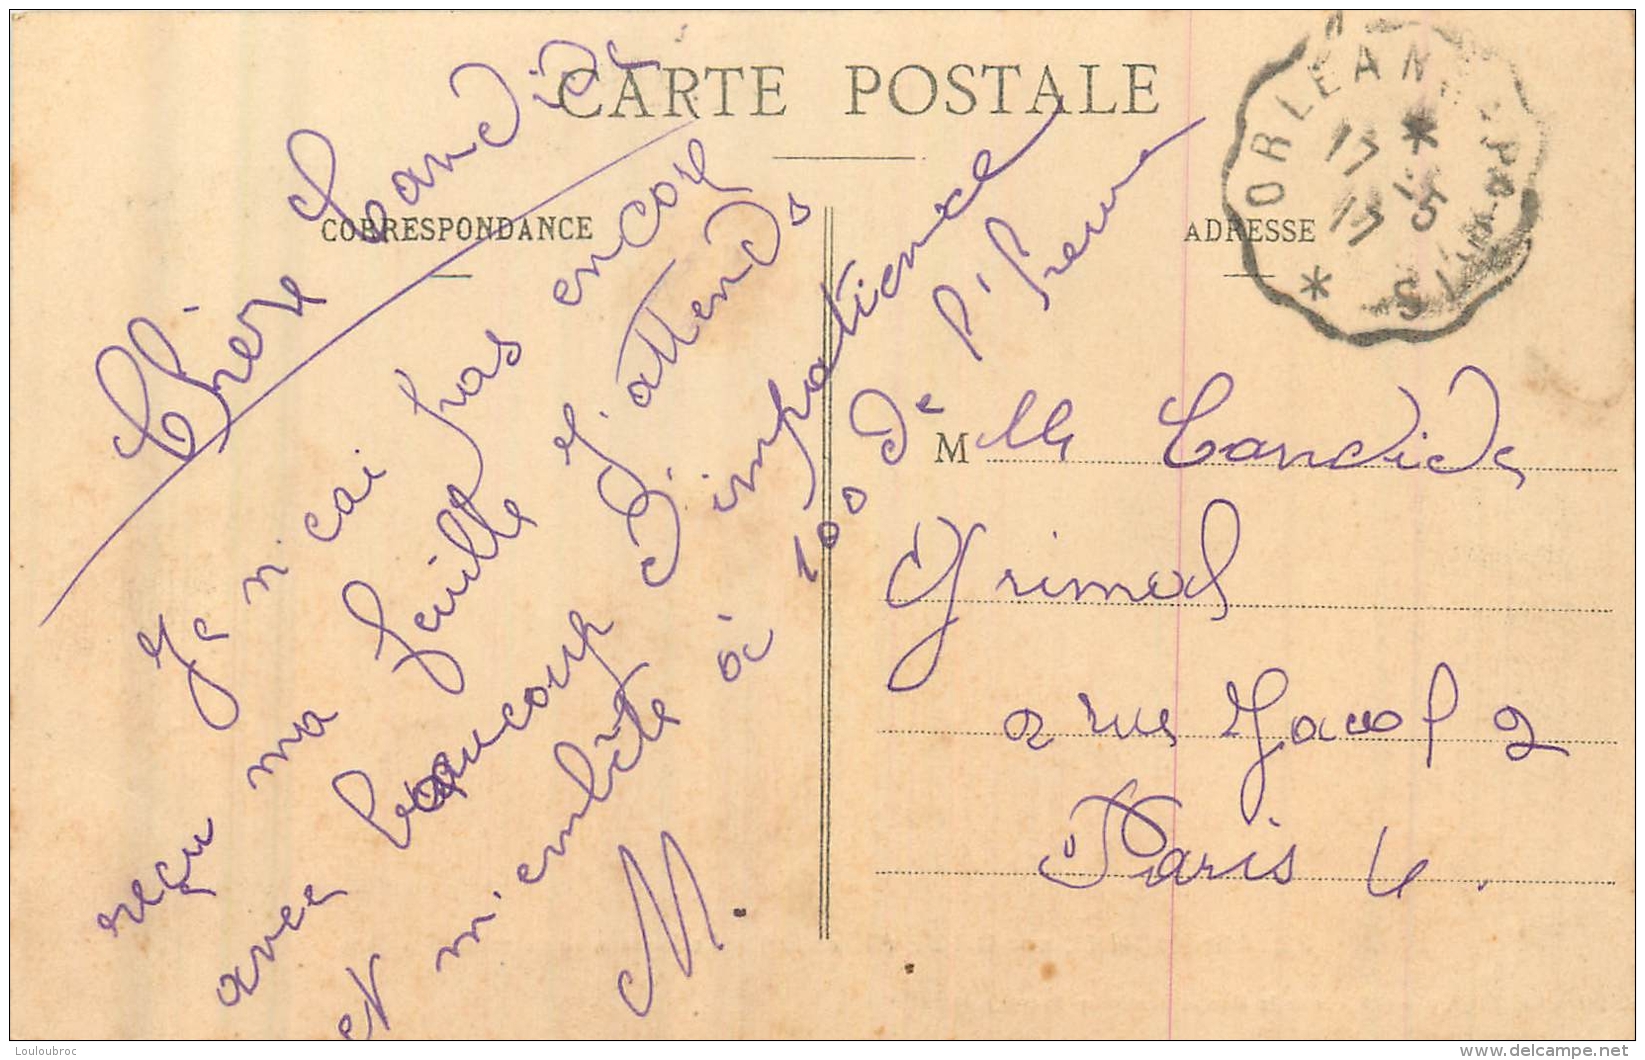 CARTE POSTALE
CORRESPONDANCE
ADRESSE
ORLÉANS
17 * 5
17
*
Chère Candide
Je n'ai pas encore
reçu ma feuille J'attends
avec beaucoup d'impatience
et m'embête à 100 de l'heure
M.
Melle Candide
Grimal
2 rue 2
Paris 4.
Louloubroc
delcampe.net